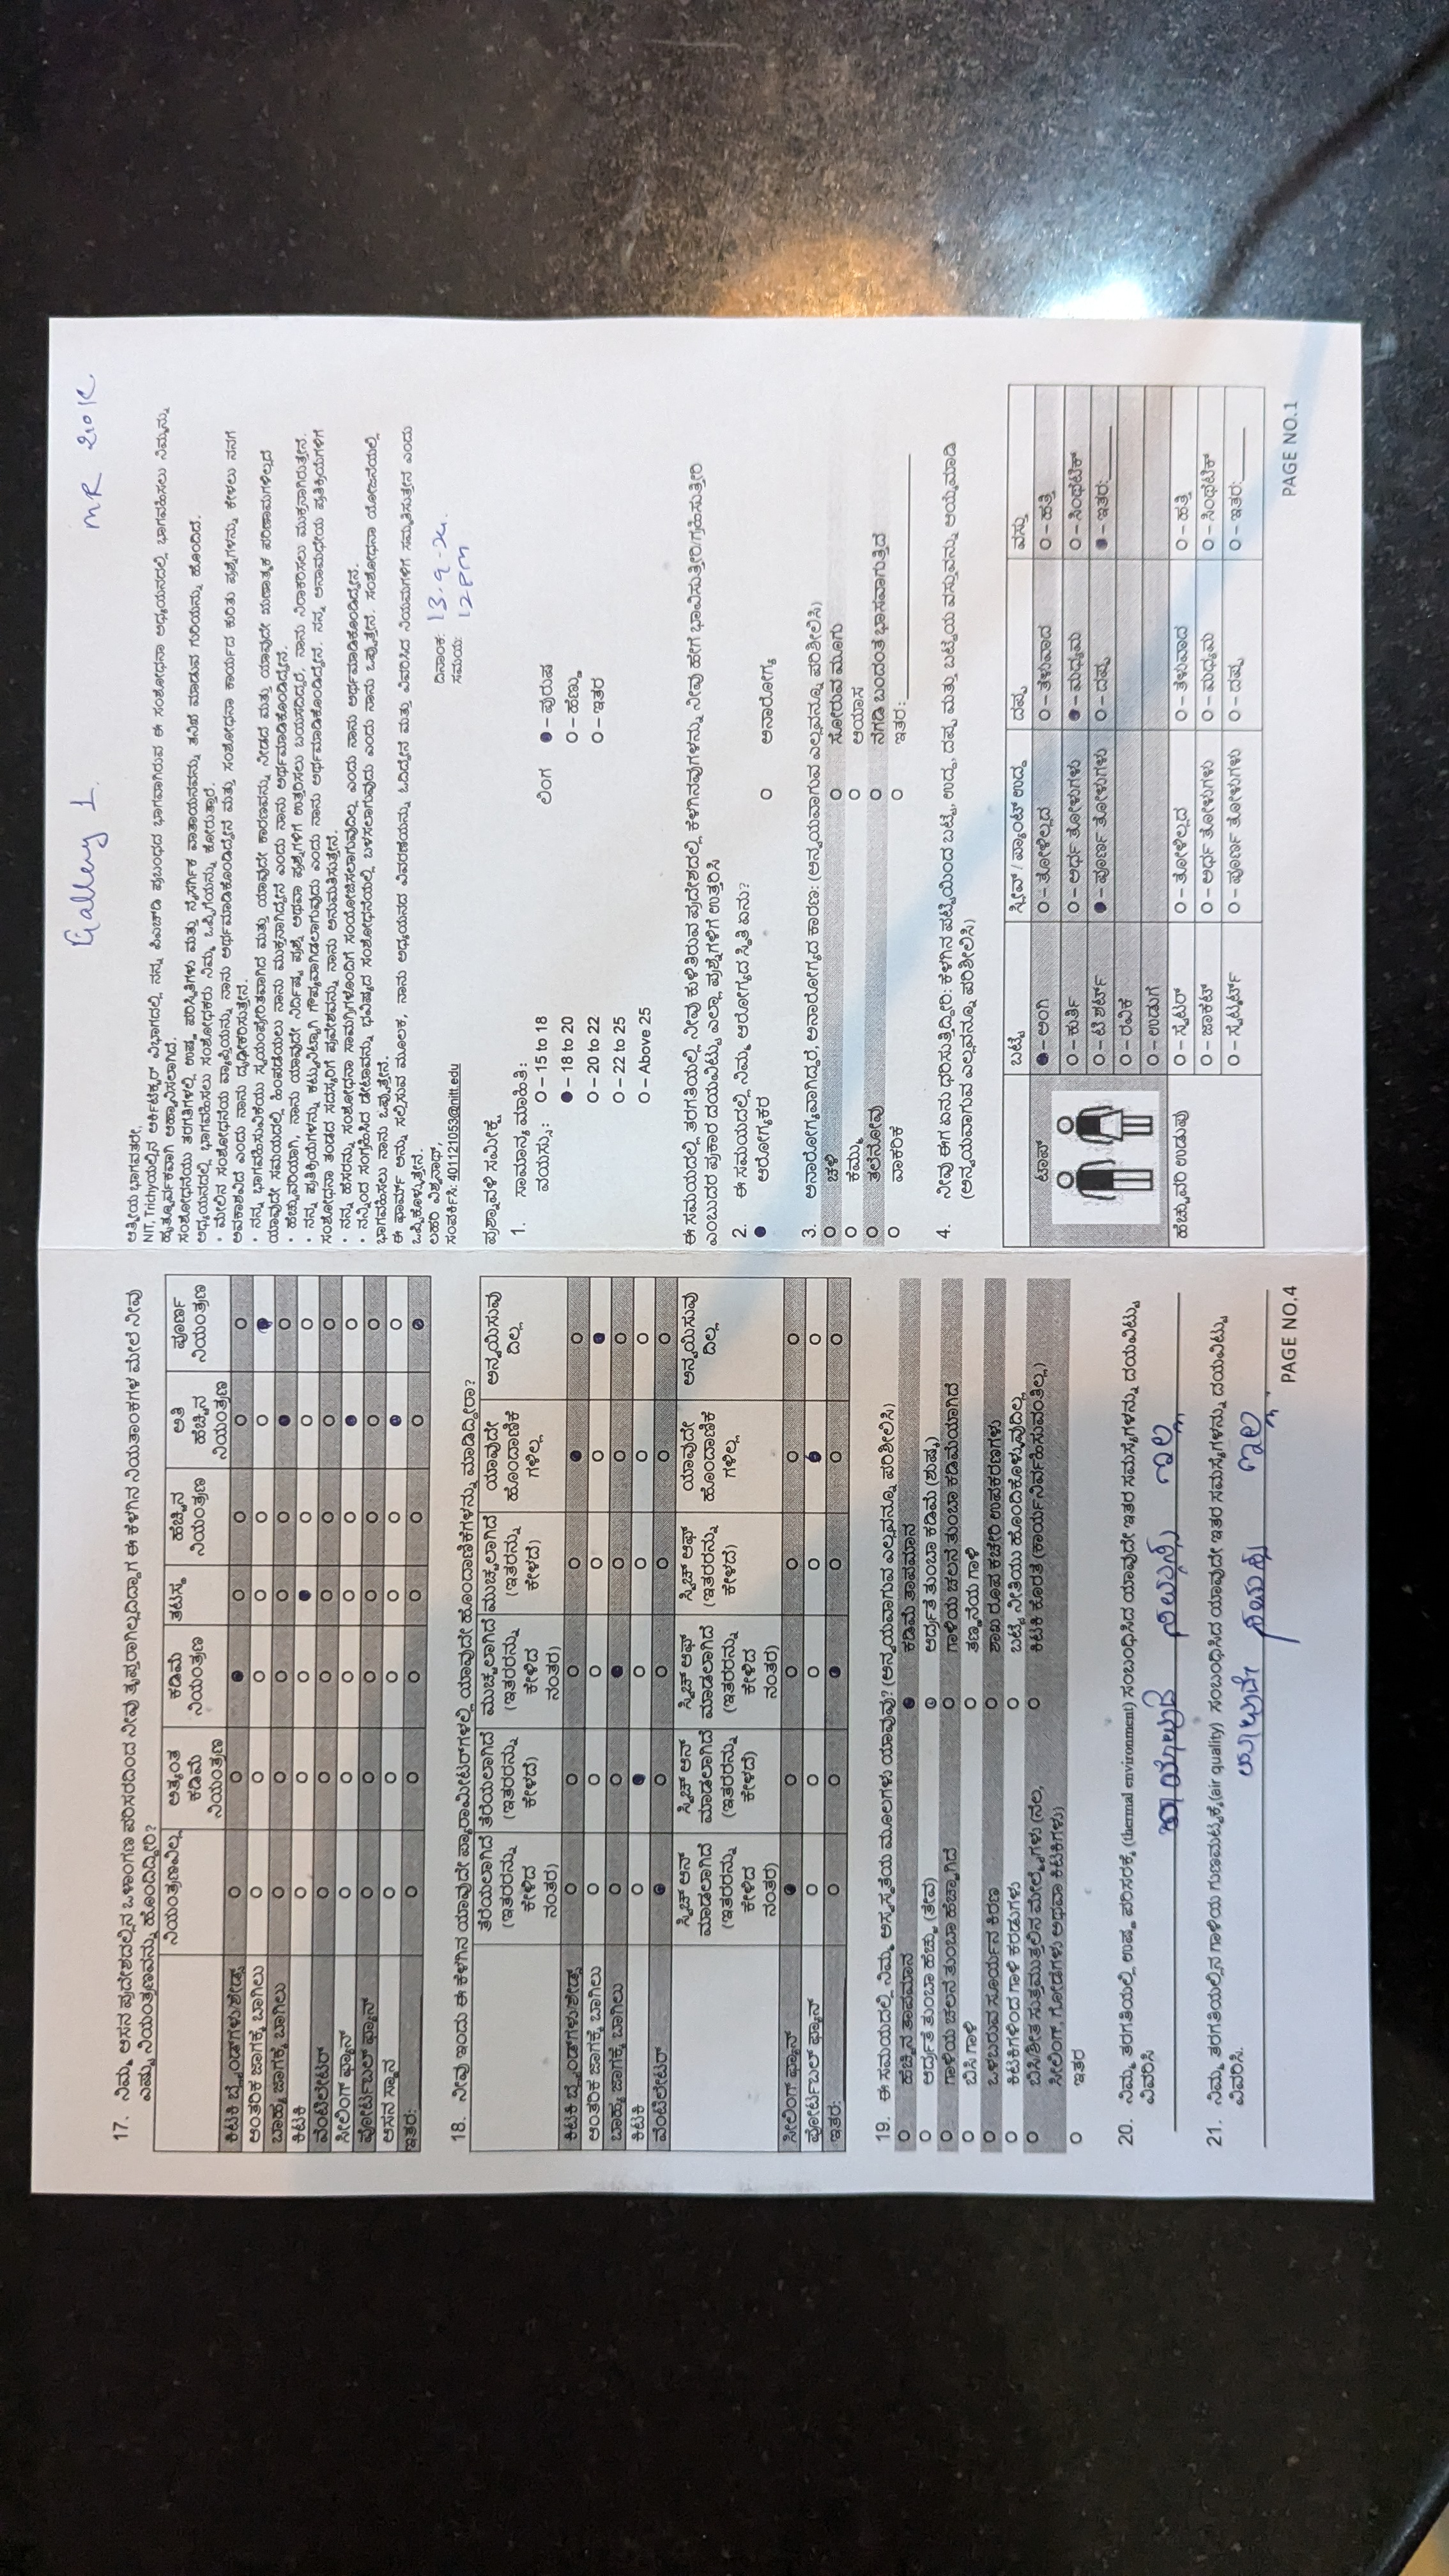 17. ನಿಮ್ಮ ಆಸನ ಪ್ರದೇಶದಲ್ಲಿನ ಒಳಾಂಗಣ ಪರಿಸರದಿಂದ ನೀವು ತೃಪ್ತರಾಗಿಲ್ಲದಿದ್ದಾಗ ಈ ಕೆಳಗಿನ ನಿಯತಾಂಕಗಳ ಮೇಲೆ ನೀವು
ಎಷ್ಟು ನಿಯಂತ್ರಣವನ್ನು ಹೊಂದಿದ್ದೀರಿ?
ನಿಯಂತ್ರಣವಿಲ್ಲ ಅತ್ಯಂತ ಕಡಿಮೆ ನಿಯಂತ್ರಣ ಕಡಿಮೆ ನಿಯಂತ್ರಣ ತಟಸ್ಥ ಹೆಚ್ಚಿನ ನಿಯಂತ್ರಣ ಅತಿ ಹೆಚ್ಚಿನ ನಿಯಂತ್ರಣ ಪೂರ್ಣ ನಿಯಂತ್ರಣ
ಕಿಟಕಿ ಬ್ಲೈಂಡ್‌ಗಳು/ಶೇಡ್ಸ್
ಆಂತರಿಕ ಜಾಗಕ್ಕೆ ಬಾಗಿಲು
ಬಾಹ್ಯ ಜಾಗಕ್ಕೆ ಬಾಗಿಲು
ಕಿಟಕಿ
ವೆಂಟಿಲೇಟರ್
ಸೀಲಿಂಗ್ ಫ್ಯಾನ್
ಪೋರ್ಟಬಲ್ ಫ್ಯಾನ್
ಆಸನ ಸ್ಥಾನ
ಇತರ:
18. ನೀವು ಇಂದು ಈ ಕೆಳಗಿನ ಯಾವುದೇ ಪ್ಯಾರಾಮೀಟರ್‌ಗಳಲ್ಲಿ ಯಾವುದೇ ಹೊಂದಾಣಿಕೆಗಳನ್ನು ಮಾಡಿದ್ದೀರಾ?
ತೆರೆಯಲಾಗಿದೆ (ಇತರರನ್ನು ಕೇಳಿದ ನಂತರ) ತೆರೆಯಲಾಗಿದೆ (ಇತರರನ್ನು ಕೇಳದೆ) ಮುಚ್ಚಲಾಗಿದೆ (ಇತರರನ್ನು ಕೇಳಿದ ನಂತರ) ಮುಚ್ಚಲಾಗಿದೆ (ಇತರರನ್ನು ಕೇಳದೆ) ಯಾವುದೇ ಹೊಂದಾಣಿಕೆ ಗಳಿಲ್ಲ ಅನ್ವಯಿಸುವು ದಿಲ್ಲ
ಕಿಟಕಿ ಬ್ಲೈಂಡ್‌ಗಳು/ಶೇಡ್ಸ್
ಆಂತರಿಕ ಜಾಗಕ್ಕೆ ಬಾಗಿಲು
ಬಾಹ್ಯ ಜಾಗಕ್ಕೆ ಬಾಗಿಲು
ಕಿಟಕಿ
ವೆಂಟಿಲೇಟರ್
ಸ್ವಿಚ್ ಆನ್ ಮಾಡಲಾಗಿದೆ (ಇತರರನ್ನು ಕೇಳಿದ ನಂತರ) ಸ್ವಿಚ್ ಆನ್ ಮಾಡಲಾಗಿದೆ (ಇತರರನ್ನು ಕೇಳದೆ) ಸ್ವಿಚ್ ಆಫ್ ಮಾಡಲಾಗಿದೆ (ಇತರರನ್ನು ಕೇಳಿದ ನಂತರ) ಸ್ವಿಚ್ ಆಫ್ (ಇತರರನ್ನು ಕೇಳದೆ) ಯಾವುದೇ ಹೊಂದಾಣಿಕೆ ಗಳಿಲ್ಲ ಅನ್ವಯಿಸುವು ದಿಲ್ಲ
ಸೀಲಿಂಗ್ ಫ್ಯಾನ್
ಪೋರ್ಟಬಲ್ ಫ್ಯಾನ್
ಇತರ:
19. ಈ ಸಮಯದಲ್ಲಿ ನಿಮ್ಮ ಅಸ್ವಸ್ಥತೆಯ ಮೂಲಗಳು ಯಾವುವು? (ಅನ್ವಯವಾಗುವ ಎಲ್ಲವನ್ನೂ ಪರಿಶೀಲಿಸಿ)
ಹೆಚ್ಚಿನ ತಾಪಮಾನ ಕಡಿಮೆ ತಾಪಮಾನ
ಆರ್ದ್ರತೆ ತುಂಬಾ ಹೆಚ್ಚು (ತೇವ) ಆರ್ದ್ರತೆ ತುಂಬಾ ಕಡಿಮೆ (ಶುಷ್ಕ)
ಗಾಳಿಯ ಚಲನೆ ತುಂಬಾ ಹೆಚ್ಚಾಗಿದೆ ಗಾಳಿಯ ಚಲನೆ ತುಂಬಾ ಕಡಿಮೆಯಾಗಿದೆ
ಬಿಸಿ ಗಾಳಿ ತಣ್ಣನೆಯ ಗಾಳಿ
ಒಳಬರುವ ಸೂರ್ಯನ ಕಿರಣ ಶಾಖ ರೂಪ ಕಚೇರಿ ಉಪಕರಣಗಳು
ಕಿಟಕಿಗಳಿಂದ ಗಾಳಿ ಕರಡುಗಳು ಬಟ್ಟೆ ನೀತಿಯು ಹೊಂದಿಕೊಳ್ಳುವುದಿಲ್ಲ
ಬಿಸಿ/ಶೀತ ಸುತ್ತಮುತ್ತಲಿನ ಮೇಲ್ಮೈಗಳು (ನೆಲ, ಕಿಟಕಿ ಕೊರತೆ (ಕಾರ್ಯನಿರ್ವಹಿಸುವಂತಿಲ್ಲ)
ಸೀಲಿಂಗ್, ಗೋಡೆಗಳು ಅಥವಾ ಕಿಟಕಿಗಳು)
ಇತರ
20. ನಿಮ್ಮ ತರಗತಿಯಲ್ಲಿ ಉಷ್ಣ ಪರಿಸರಕ್ಕೆ (thermal environment) ಸಂಬಂಧಿಸಿದ ಯಾವುದೇ ಇತರ ಸಮಸ್ಯೆಗಳನ್ನು ದಯವಿಟ್ಟು
ವಿವರಿಸಿ
ಇಲ್ಲ
21. ನಿಮ್ಮ ತರಗತಿಯಲ್ಲಿನ ಗಾಳಿಯ ಗುಣಮಟ್ಟಕ್ಕೆ (air quality) ಸಂಬಂಧಿಸಿದ ಯಾವುದೇ ಇತರ ಸಮಸ್ಯೆಗಳನ್ನು ದಯವಿಟ್ಟು
ವಿವರಿಸಿ.
ಯಾವುದೇ ಇಲ್ಲ
PAGE NO.4
Gallery 1
ಆತ್ಮೀಯ ಭಾಗವತರೇ,
NIT, Trichyಯಲ್ಲಿನ ಆರ್ಕಿಟೆಕ್ಚರ್ ವಿಭಾಗದಲ್ಲಿ, ನನ್ನ ಪಿಎಚ್‌ಡಿ ಪ್ರಬಂಧದ ಭಾಗವಾಗಿರುವ ಈ ಸಂಶೋಧನಾ ಅಧ್ಯಯನದಲ್ಲಿ ಭಾಗವಹಿಸಲು ನಿಮ್ಮನ್ನು
ಹೃತ್ಪೂರ್ವಕವಾಗಿ ಆಹ್ವಾನಿಸಲಾಗಿದೆ.
ಸಂಶೋಧನೆಯು ತರಗತಿಗಳಲ್ಲಿ ಉಷ್ಣ ಪರಿಸ್ಥಿತಿಗಳು ಮತ್ತು ನೈಸರ್ಗಿಕ ವಾತಾಯನವನ್ನು ತನಿಖೆ ಮಾಡುವ ಗುರಿಯನ್ನು ಹೊಂದಿದೆ.
ಅಧ್ಯಯನದಲ್ಲಿ ಭಾಗವಹಿಸಲು ಸಂಶೋಧಕರು ನಿಮ್ಮ ಒಪ್ಪಿಗೆಯನ್ನು ಕೋರುತ್ತಾರೆ.
• ಮೇಲಿನ ಸಂಶೋಧನೆಯ ವ್ಯಾಪ್ತಿಯನ್ನು ನಾನು ಅರ್ಥಮಾಡಿಕೊಂಡಿದ್ದೇನೆ ಮತ್ತು ಸಂಶೋಧನಾ ಕಾರ್ಯದ ಕುರಿತು ಪ್ರಶ್ನೆಗಳನ್ನು ಕೇಳಲು ನನಗೆ
ಅವಕಾಶವಿದೆ ಎಂದು ನಾನು ದೃಢೀಕರಿಸುತ್ತೇನೆ.
• ನನ್ನ ಭಾಗವಹಿಸುವಿಕೆಯು ಸ್ವಯಂಪ್ರೇರಿತವಾಗಿದೆ ಮತ್ತು ಯಾವುದೇ ಕಾರಣವನ್ನು ನೀಡದೆ ಮತ್ತು ಯಾವುದೇ ಋಣಾತ್ಮಕ ಪರಿಣಾಮಗಳಿಲ್ಲದೆ
ಯಾವುದೇ ಸಮಯದಲ್ಲಿ ಹಿಂಪಡೆಯಲು ನಾನು ಮುಕ್ತನಾಗಿದ್ದೇನೆ ಎಂದು ನಾನು ಅರ್ಥಮಾಡಿಕೊಂಡಿದ್ದೇನೆ.
• ಹೆಚ್ಚುವರಿಯಾಗಿ, ನಾನು ಯಾವುದೇ ನಿರ್ದಿಷ್ಟ ಪ್ರಶ್ನೆ ಅಥವಾ ಪ್ರಶ್ನೆಗಳಿಗೆ ಉತ್ತರಿಸಲು ಬಯಸದಿದ್ದರೆ, ನಾನು ನಿರಾಕರಿಸಲು ಮುಕ್ತನಾಗಿರುತ್ತೇನೆ.
• ನನ್ನ ಪ್ರತಿಕ್ರಿಯೆಗಳನ್ನು ಕಟ್ಟುನಿಟ್ಟಾಗಿ ಗೌಪ್ಯವಾಗಿಡಲಾಗುವುದು ಎಂದು ನಾನು ಅರ್ಥಮಾಡಿಕೊಂಡಿದ್ದೇನೆ. ನನ್ನ ಅನಾಮಧೇಯ ಪ್ರತಿಕ್ರಿಯೆಗಳಿಗೆ
ಸಂಶೋಧನಾ ತಂಡದ ಸದಸ್ಯರಿಗೆ ಪ್ರವೇಶವನ್ನು ನಾನು ಅನುಮತಿಸುತ್ತೇನೆ.
• ನನ್ನ ಹೆಸರನ್ನು ಸಂಶೋಧನಾ ಸಾಮಗ್ರಿಗಳೊಂದಿಗೆ ಸಂಯೋಜಿಸಲಾಗುವುದಿಲ್ಲ ಎಂದು ನಾನು ಅರ್ಥಮಾಡಿಕೊಂಡಿದ್ದೇನೆ.
• ನನ್ನಿಂದ ಸಂಗ್ರಹಿಸಿದ ಡೇಟಾವನ್ನು ಭವಿಷ್ಯದ ಸಂಶೋಧನೆಯಲ್ಲಿ ಬಳಸಲಾಗುವುದು ಎಂದು ನಾನು ಒಪ್ಪುತ್ತೇನೆ. ಸಂಶೋಧನಾ ಯೋಜನೆಯಲ್ಲಿ
ಭಾಗವಹಿಸಲು ನಾನು ಒಪ್ಪುತ್ತೇನೆ.
ಈ ಫಾರ್ಮ್ ಅನ್ನು ಸಲ್ಲಿಸುವ ಮೂಲಕ, ನಾನು ಅಧ್ಯಯನದ ವಿವರಣೆಯನ್ನು ಓದಿದ್ದೇನೆ ಮತ್ತು ವಿವರಿಸಿದ ನಿಯಮಗಳಿಗೆ ಸಮ್ಮತಿಸುತ್ತೇನೆ ಎಂದು
ಒಪ್ಪಿಕೊಳ್ಳುತ್ತೇನೆ.
ಲಹರಿ ವಿಶ್ವನಾಥ್,
ಸಂಪರ್ಕಿಸಿ: 401121053@nitt.edu
ದಿನಾಂಕ:
ಸಮಯ: 12 PM
ಪ್ರಶ್ನಾವಳಿ ಸಮೀಕ್ಷೆ
1. ಸಾಮಾನ್ಯ ಮಾಹಿತಿ:
ವಯಸ್ಸು: – 15 to 18 ಲಿಂಗ – ಪುರುಷ
– 18 to 20 – ಹೆಣ್ಣು
– 20 to 22 – ಇತರ
– 22 to 25
– Above 25
ಈ ಸಮಯದಲ್ಲಿ ತರಗತಿಯಲ್ಲಿ ನೀವು ಕುಳಿತಿರುವ ಪ್ರದೇಶದಲ್ಲಿ ಕೆಳಗಿನವುಗಳನ್ನು ನೀವು ಹೇಗೆ ಭಾವಿಸುತ್ತೀರಿ/ಗ್ರಹಿಸುತ್ತೀರಿ
ಎಂಬುದರ ಪ್ರಕಾರ ದಯವಿಟ್ಟು ಎಲ್ಲಾ ಪ್ರಶ್ನೆಗಳಿಗೆ ಉತ್ತರಿಸಿ
2. ಈ ಸಮಯದಲ್ಲಿ ನಿಮ್ಮ ಆರೋಗ್ಯದ ಸ್ಥಿತಿ ಏನು?
ಆರೋಗ್ಯಕರ ಅನಾರೋಗ್ಯ
3. ಅನಾರೋಗ್ಯವಾಗಿದ್ದರೆ, ಅನಾರೋಗ್ಯದ ಕಾರಣ: (ಅನ್ವಯವಾಗುವ ಎಲ್ಲವನ್ನೂ ಪರಿಶೀಲಿಸಿ)
ಚಳಿ ಸೋರುವ ಮೂಗು
ಕೆಮ್ಮು ಆಯಾಸ
ತಲೆನೋವು ನೆಗಡಿ ಬಂದಂತೆ ಭಾಸವಾಗುತ್ತಿದೆ
ವಾಕರಿಕೆ ಇತರ:
4. ನೀವು ಈಗ ಏನು ಧರಿಸುತ್ತಿದ್ದೀರಿ: ಕೆಳಗಿನ ಪಟ್ಟಿಯಿಂದ ಬಟ್ಟೆ, ಉದ್ದ, ದಪ್ಪ ಮತ್ತು ಬಟ್ಟೆಯ ವಸ್ತುವನ್ನು ಆಯ್ಕೆಮಾಡಿ
(ಅನ್ವಯವಾಗುವ ಎಲ್ಲವನ್ನೂ ಪರಿಶೀಲಿಸಿ)
ಬಟ್ಟೆ ಸ್ಲೀವ್ / ಪ್ಯಾಂಟ್ ಉದ್ದ ದಪ್ಪ ವಸ್ತು
ಟಾಪ್ – ಅಂಗಿ – ತೋಳಿಲ್ಲದ – ತೆಳುವಾದ – ಹತ್ತಿ
– ಕುರ್ತಿ – ಅರ್ಧ ತೋಳುಗಳು – ಮಧ್ಯಮ – ಸಿಂಥೆಟಿಕ್
– ಟಿ ಶರ್ಟ್ – ಪೂರ್ಣ ತೋಳುಗಳು – ದಪ್ಪ – ಇತರ:
– ರವಿಕೆ
– ಉಡುಗೆ
ಹೆಚ್ಚುವರಿ ಉಡುಪು – ಸ್ವೆಟರ್ – ತೋಳಿಲ್ಲದ – ತೆಳುವಾದ – ಹತ್ತಿ
– ಜಾಕೆಟ್ – ಅರ್ಧ ತೋಳುಗಳು – ಮಧ್ಯಮ – ಸಿಂಥೆಟಿಕ್
– ಸ್ವೆಟ್ಶರ್ಟ್ – ಪೂರ್ಣ ತೋಳುಗಳು – ದಪ್ಪ – ಇತರ:
PAGE NO.1